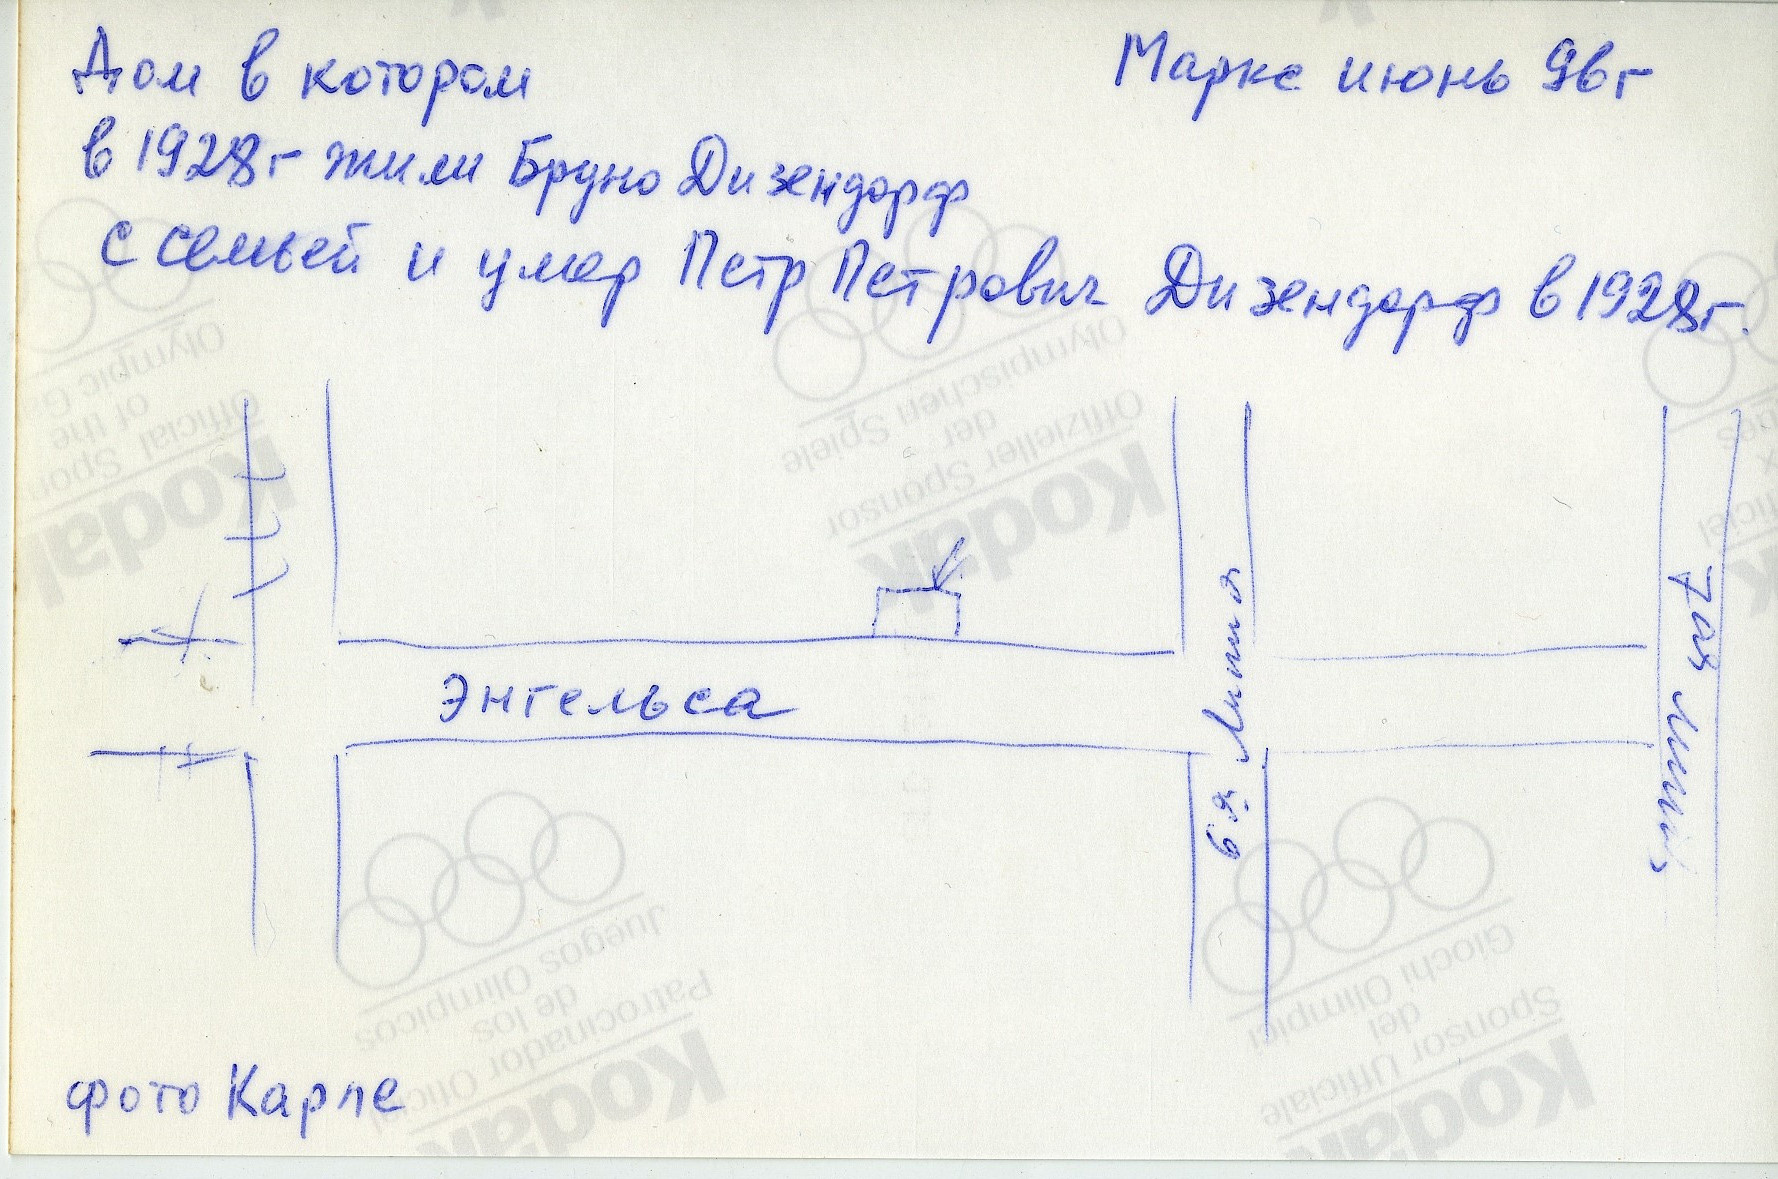 Дом в котором
Маркс июнь 96г
в 1928г жили Бруно Дизендорф
с семьей и умер Петр Петрович Дизендорф в 1928г.
Энгельса
6я Линия
7ая Линия
фото Карпе
Kodak
Official Sponsor
of the
Olympic Ga
Kodak
Offizieller Sponsor
der
Olympischen Spiele
Kodak
Patrocinador Oficial
de los
Juegos Olimpicos
Kodak
Sponsor Ufficiale
dei
Giochi Olimpici